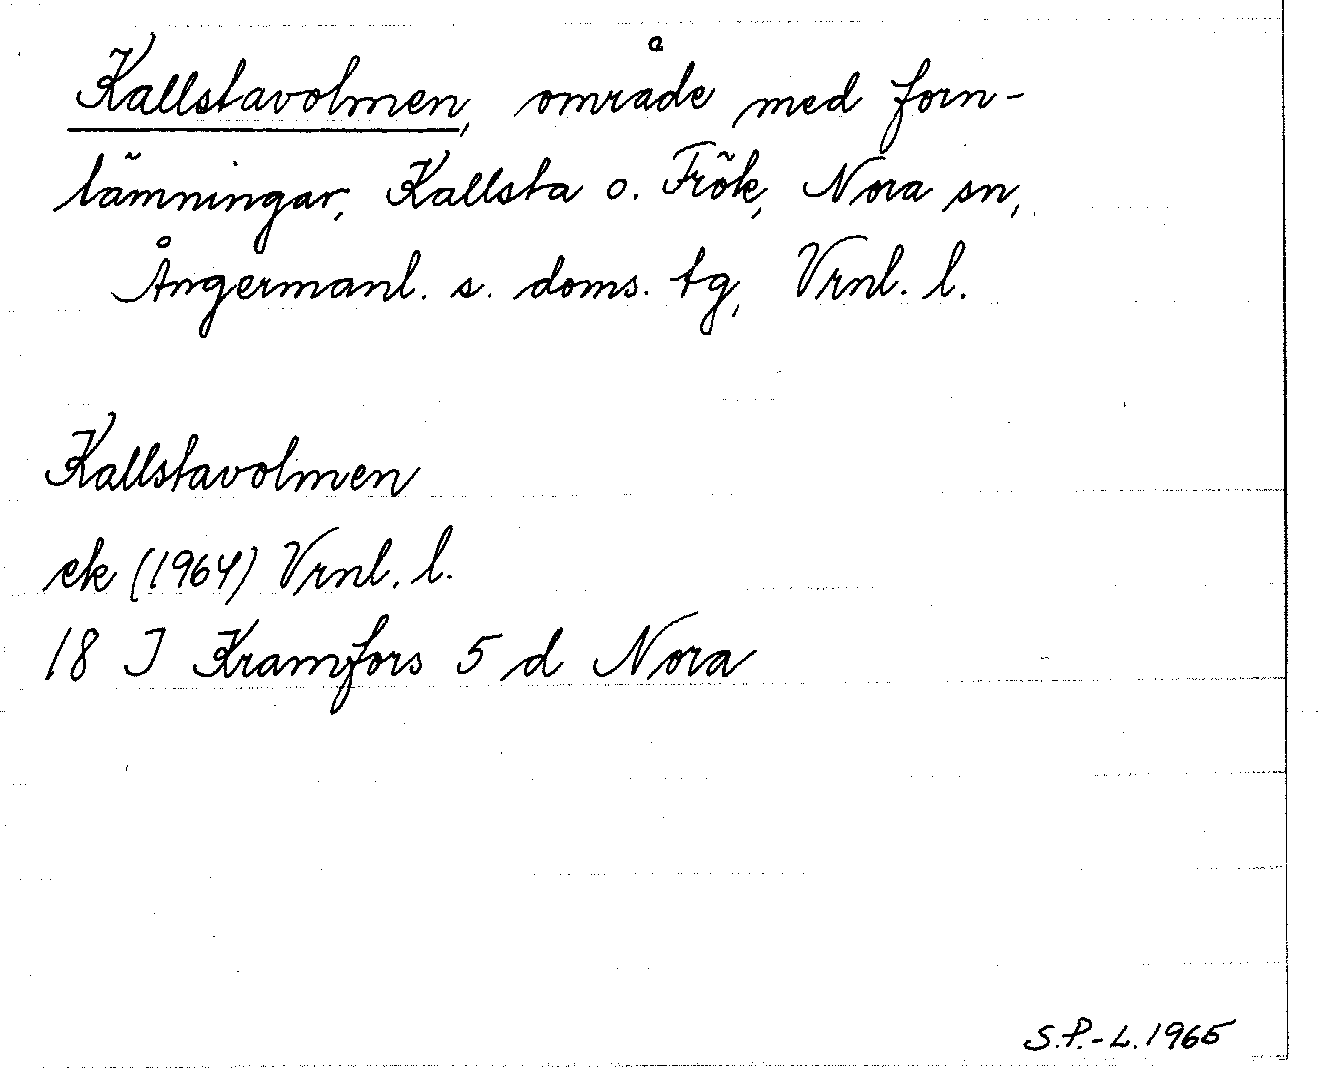 Kallstavolmen, område med forn-
lämningar, Kallsta o. Frök, Nora sn,
Ångermanl. s. doms. tg, Vrnl. l.
Kallstavolmen
ek (1964) Vrnl. l.
18 I Kramfors 5 d Nora
S.P.-L. 1965